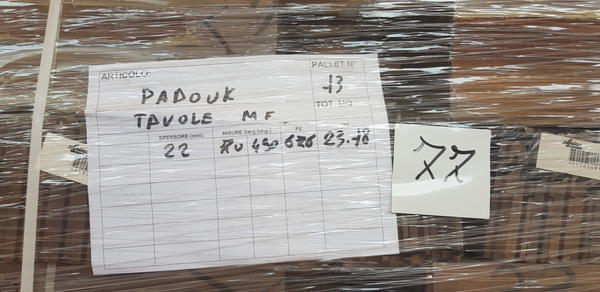 ARTICOLO:
PALLET N°
13
PADOUK
TOT. MQ
TAVOLE MF.
SPESSORE (mm) MISURE (larg.lung.) PZ MQ
22 70 490 676 23.18
77